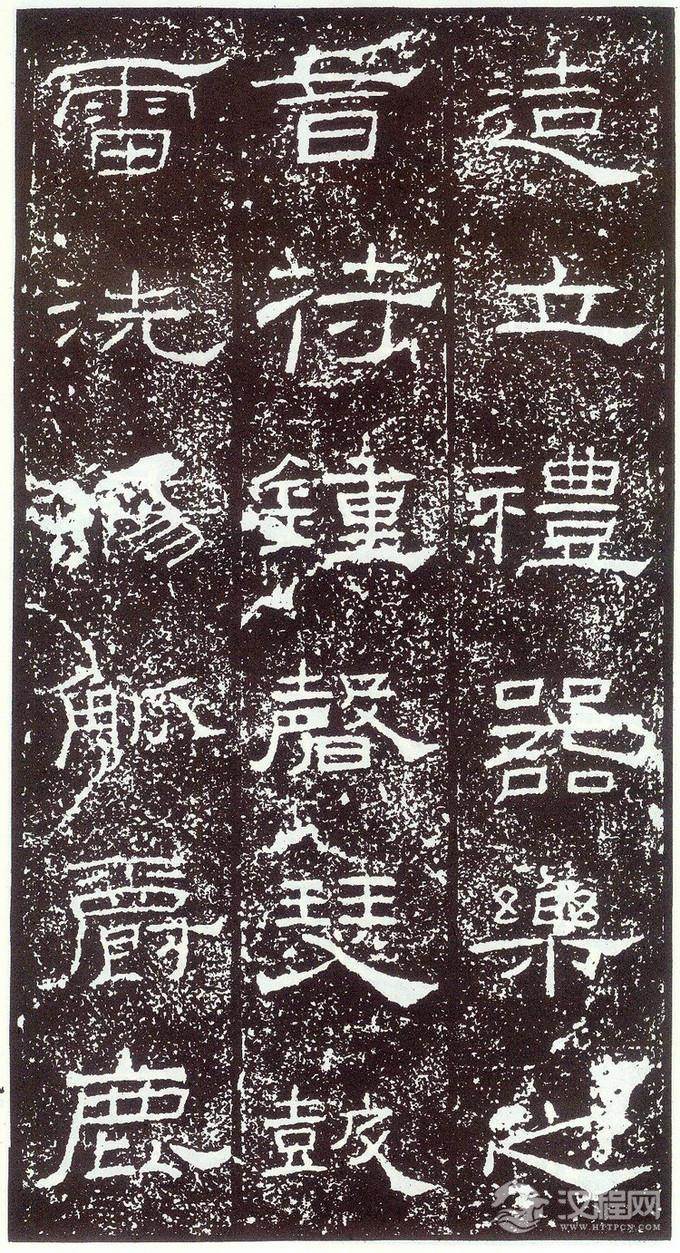 造立禮器樂之
音苻鍾磬瑟鼓
雷洗觴觚爵鹿
汉程网
WWW.HTTPCN.COM